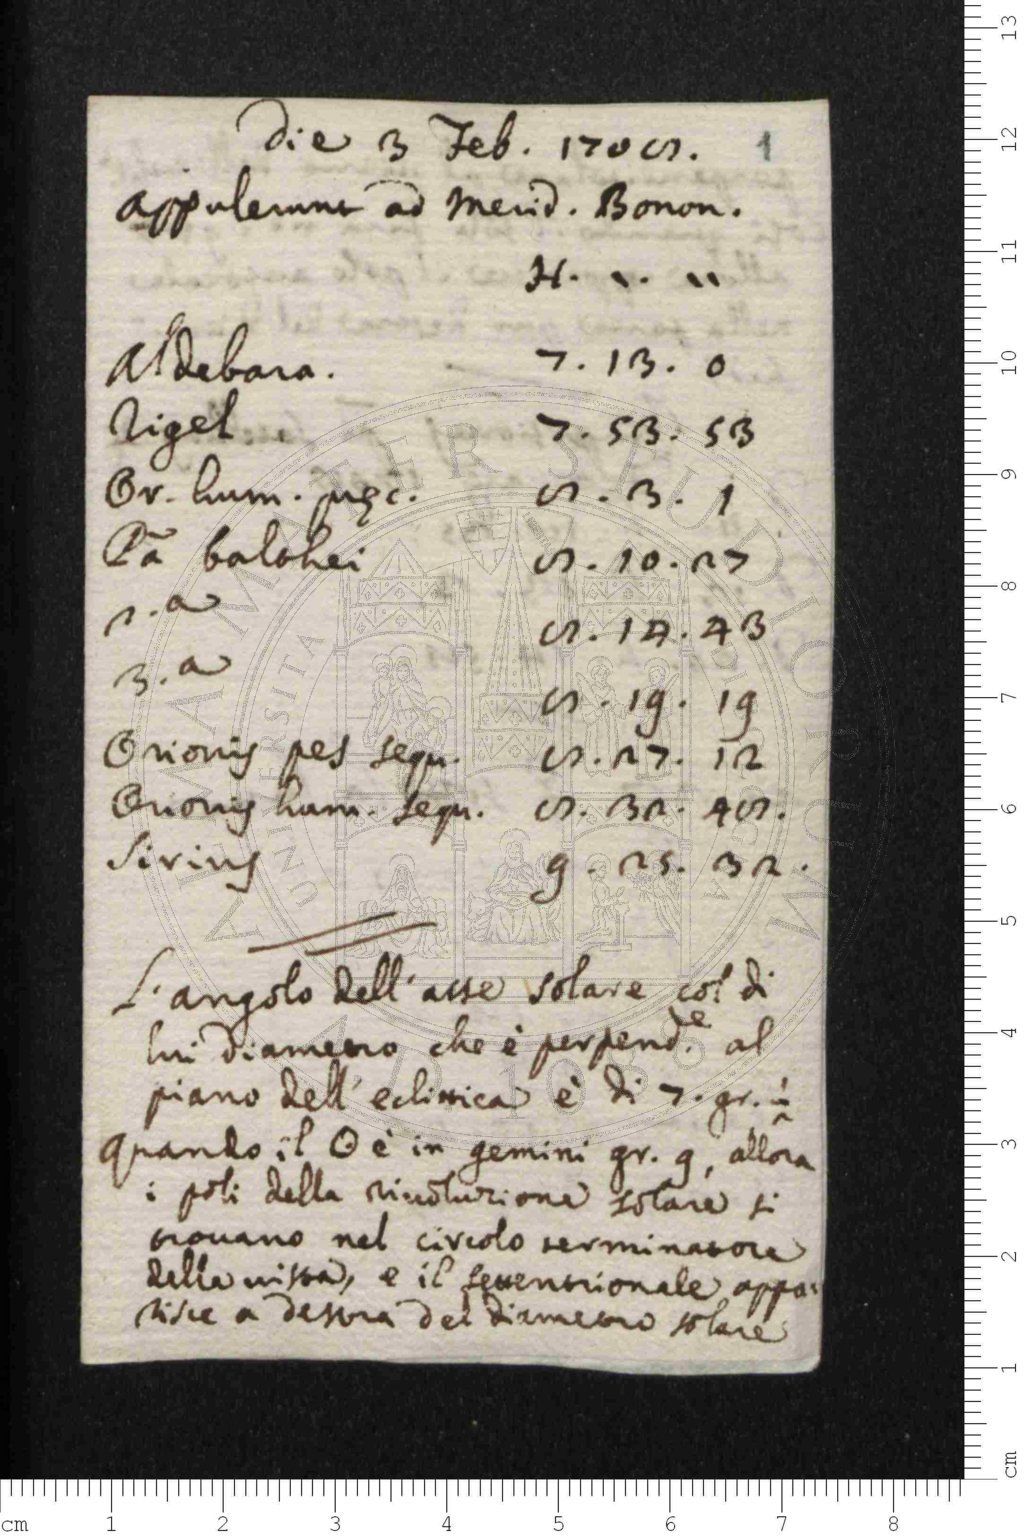 Die 3 Feb. 1708. 1
appulerunt ad Merid. Bonon.
H. ‵. ‵‵
Aldebara. 7. 13. 0
Rigel 7. 53. 53
Or. hum. pręc. 8. 3. 1
Pa balthei 8. 10. 27
2.a 8. 14. 43
3.a 8. 19. 19
Orionis pes sequ. 8. 27. 12
Orionis hum. sequ. 8. 32. 48.
Sirius 9. 25. 32.
L'angolo dell'asse solare col di
lui diametro che è perpend.e al
piano dell'eclittica è di 7. gr.
quando il ʘ è in gemini gr. 9, allora
i poli della rivoluzione solare si
trovano nel circolo terminatore
della vista, e il settentrionale appa:
risce a destra del diametro solare
ALMA MATER STUDIORUM
UNIVERSITA
A.D. 1088
cm 1 2 3 4 5 6 7 8
cm 1 2 3 4 5 6 7 8 9 10 11 12 13